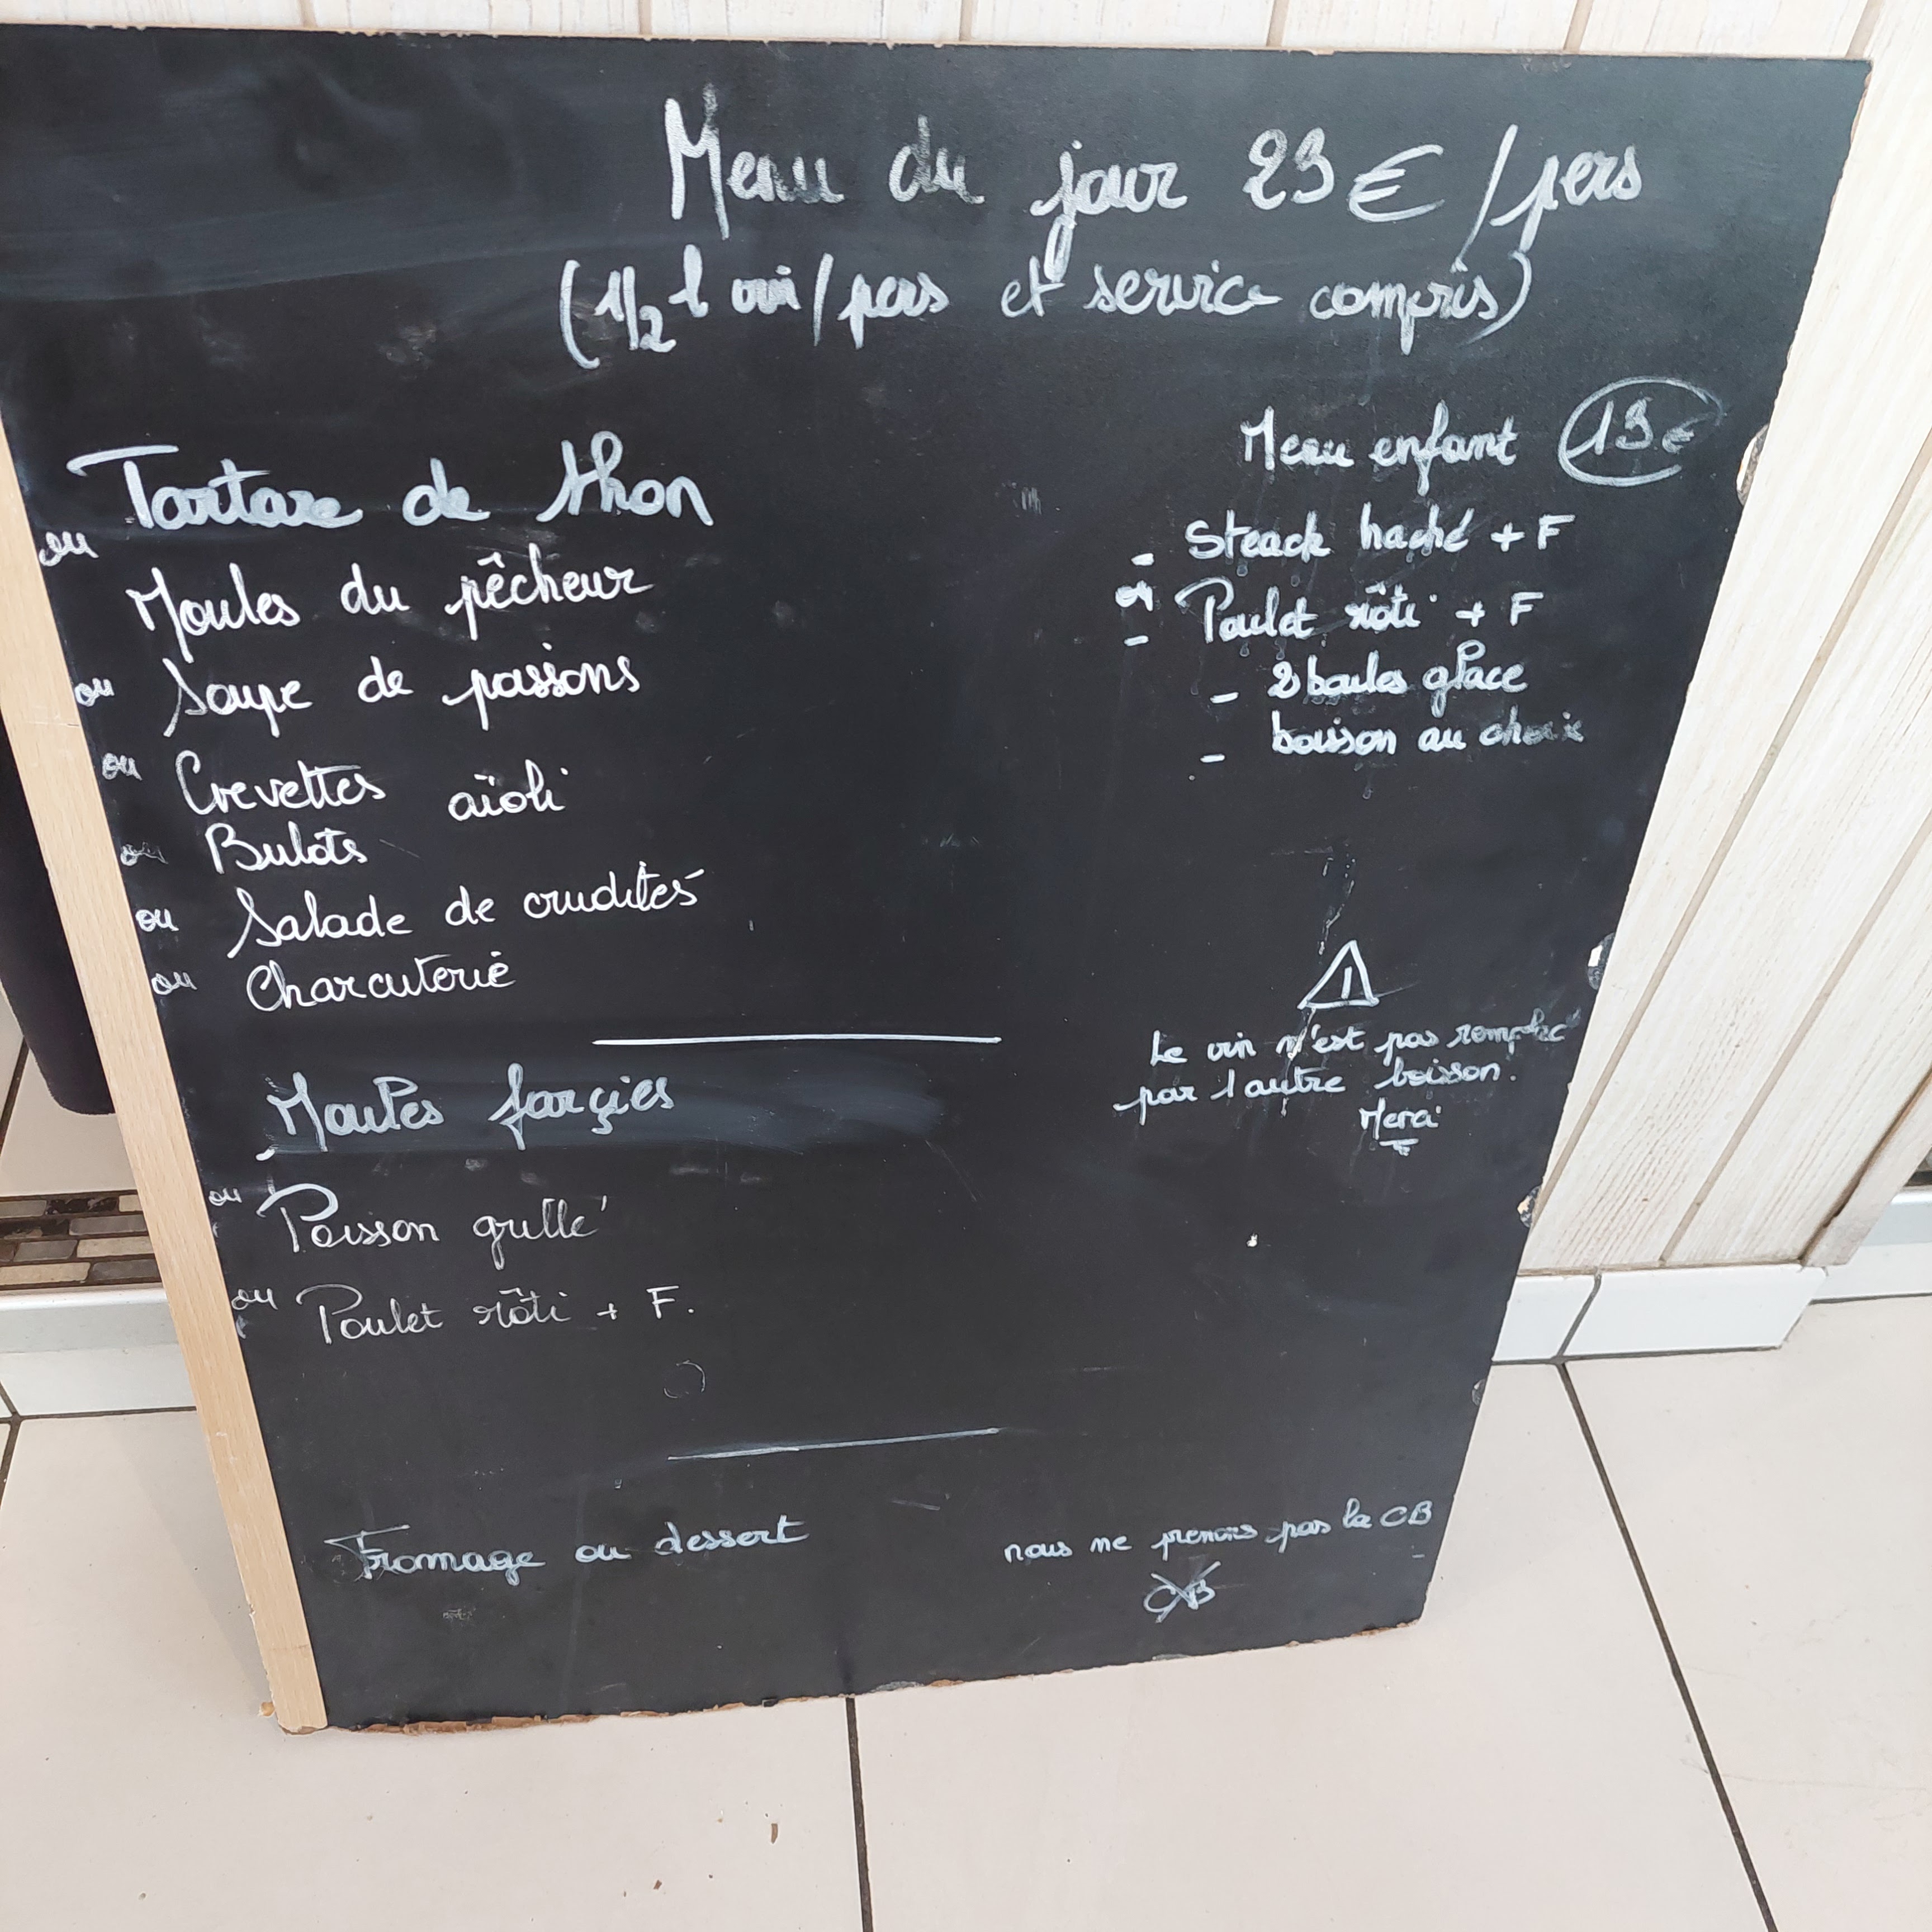 Menu du jour 23€/pers
(1/2 l vin/pers et service compris)
Tartare de thon
ou
Moules du pêcheur
ou Soupe de poissons
ou Crevettes aïoli
ou Bulots
ou Salade de crudités
ou Charcuterie
Moules farçies
ou Poisson grillé
ou Poulet rôti + F.
Fromage ou dessert
Menu enfant 13€
- Steack haché + F
ou
- Poulet rôti + F
- 2 boules glace
- boisson au choix
Le vin n'est pas remplacé
par 1 autre boisson.
Merci
nous ne prenons pas la CB
CB